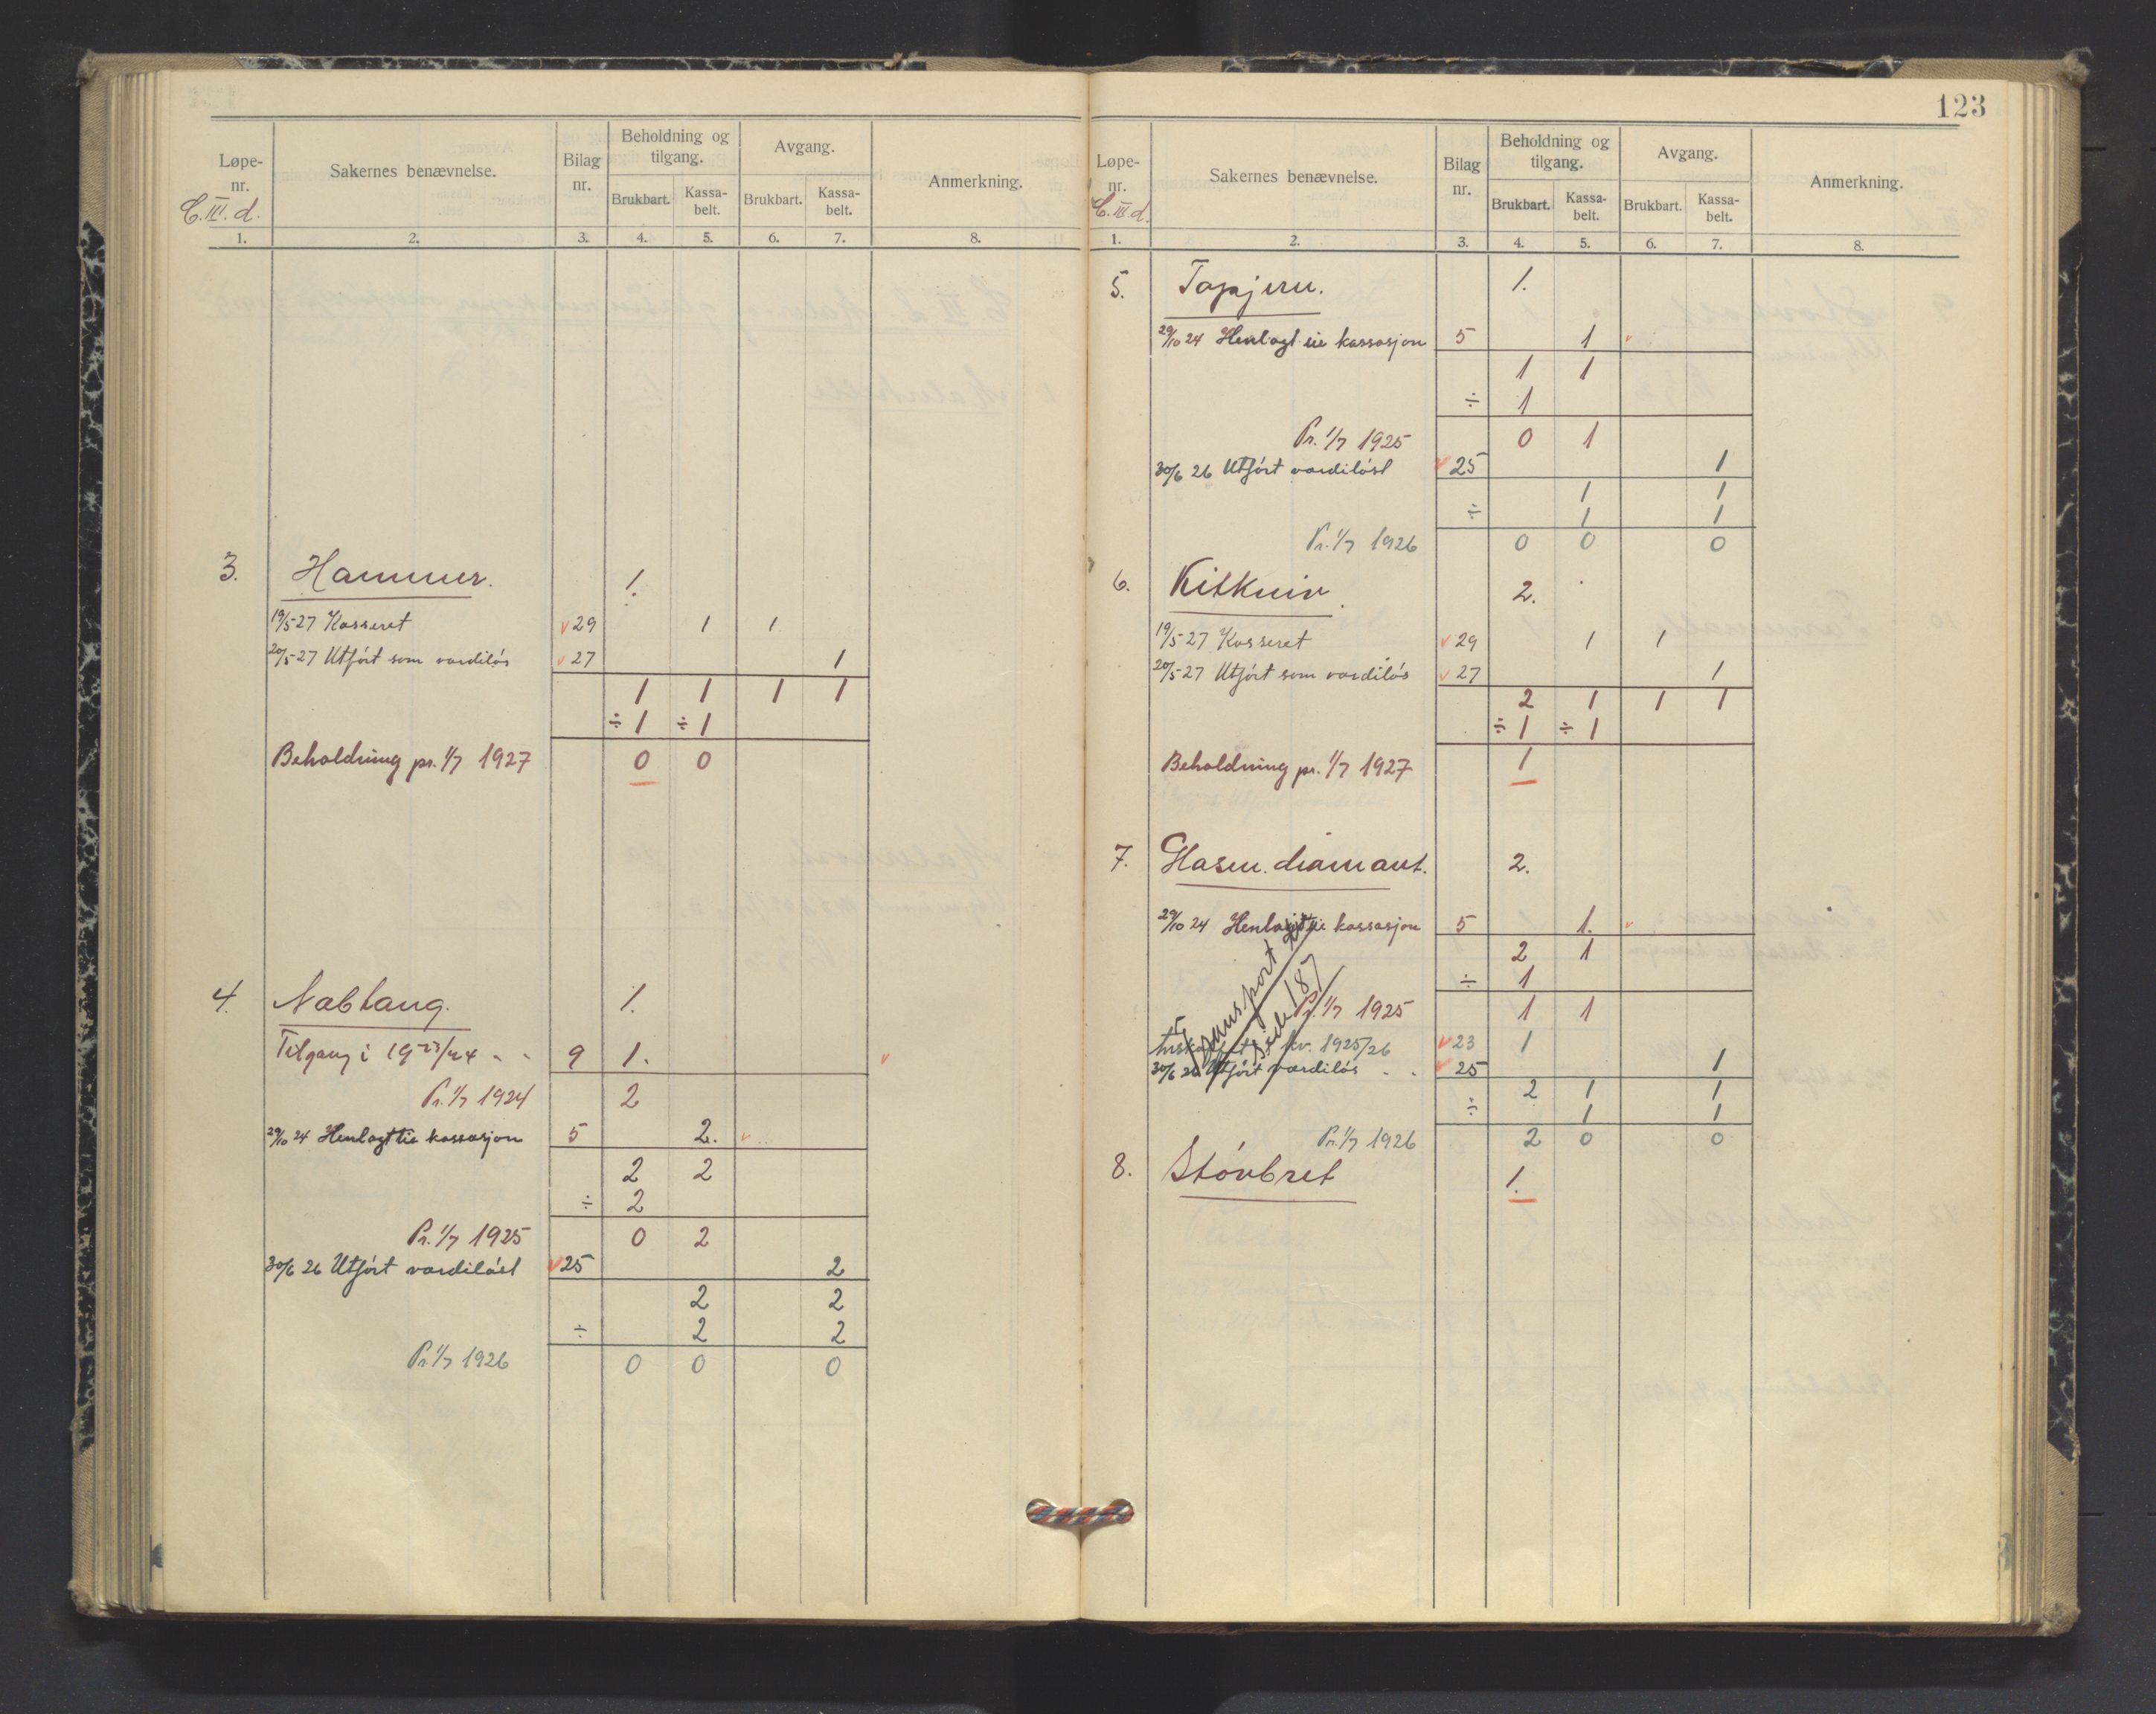 Løpe-nr. Sakernes benævnelse. Bilag nr. Beholdning og tilgang. Avgang. Anmerkning.
Brukbart. Kassa-belt. Brukbart. Kassa-belt.
C. III. d.
1. 2. 3. 4. 5. 6. 7. 8.
3. Hammer. 1.
19/5-27 Kasseret v 29 1 1
20/5-27 Utført som værdiløs v 27 1
1 1 1 1
÷ 1 ÷ 1
Beholdning pr. 1/7 1927 0 0
4. Nabtang. 1.
Tilgang i 19 23/24 - - 9 1. v
Pr. 1/7 1924 2
29/10 24 Henlagt til kassasjon 5 2. v
2 2
÷ 2
Pr. 1/7 1925 0 2
30/6 26 Utført værdiløst v 25 2
2 2
÷ 2 2
Pr. 1/7 1926 0 0 0
123
Løpe-nr. Sakernes benævnelse. Bilag nr. Beholdning og tilgang. Avgang. Anmerkning.
Brukbart. Kassa-belt. Brukbart. Kassa-belt.
C. III d.
1. 2. 3. 4. 5. 6. 7. 8.
5. Tapjern. 1.
29/10 24 Henlagt til kassasjon 5 1 v
1 1
÷ 1
Pr. 1/7 1925 0 1
30/6 26 Utført værdiløst v 25 1
1 1
÷ 1 1
Pr. 1/7 1926 0 0 0
6. Kitkniv. 2.
19/5-27 Kasseret v 29 1 1
20/5-27 Utført som værdiløs v 27 1
2 1 1 1
÷ 1 ÷ 1
Beholdning pr. 1/7 1927 1
7. Glasm. diamant. 2.
29/10 24 Henlagt til kassasjon 5 1. v
2 1
÷ 1
Pr. 1/7 1925 1 1
Transport
side 187
kv. 1925/26 v 23 1
30/6 26 Utført værdiløs - - v 25 1
2 1 1
÷ 1 1
Pr. 1/7 1926 2 0 0
8. Støvbret 1.